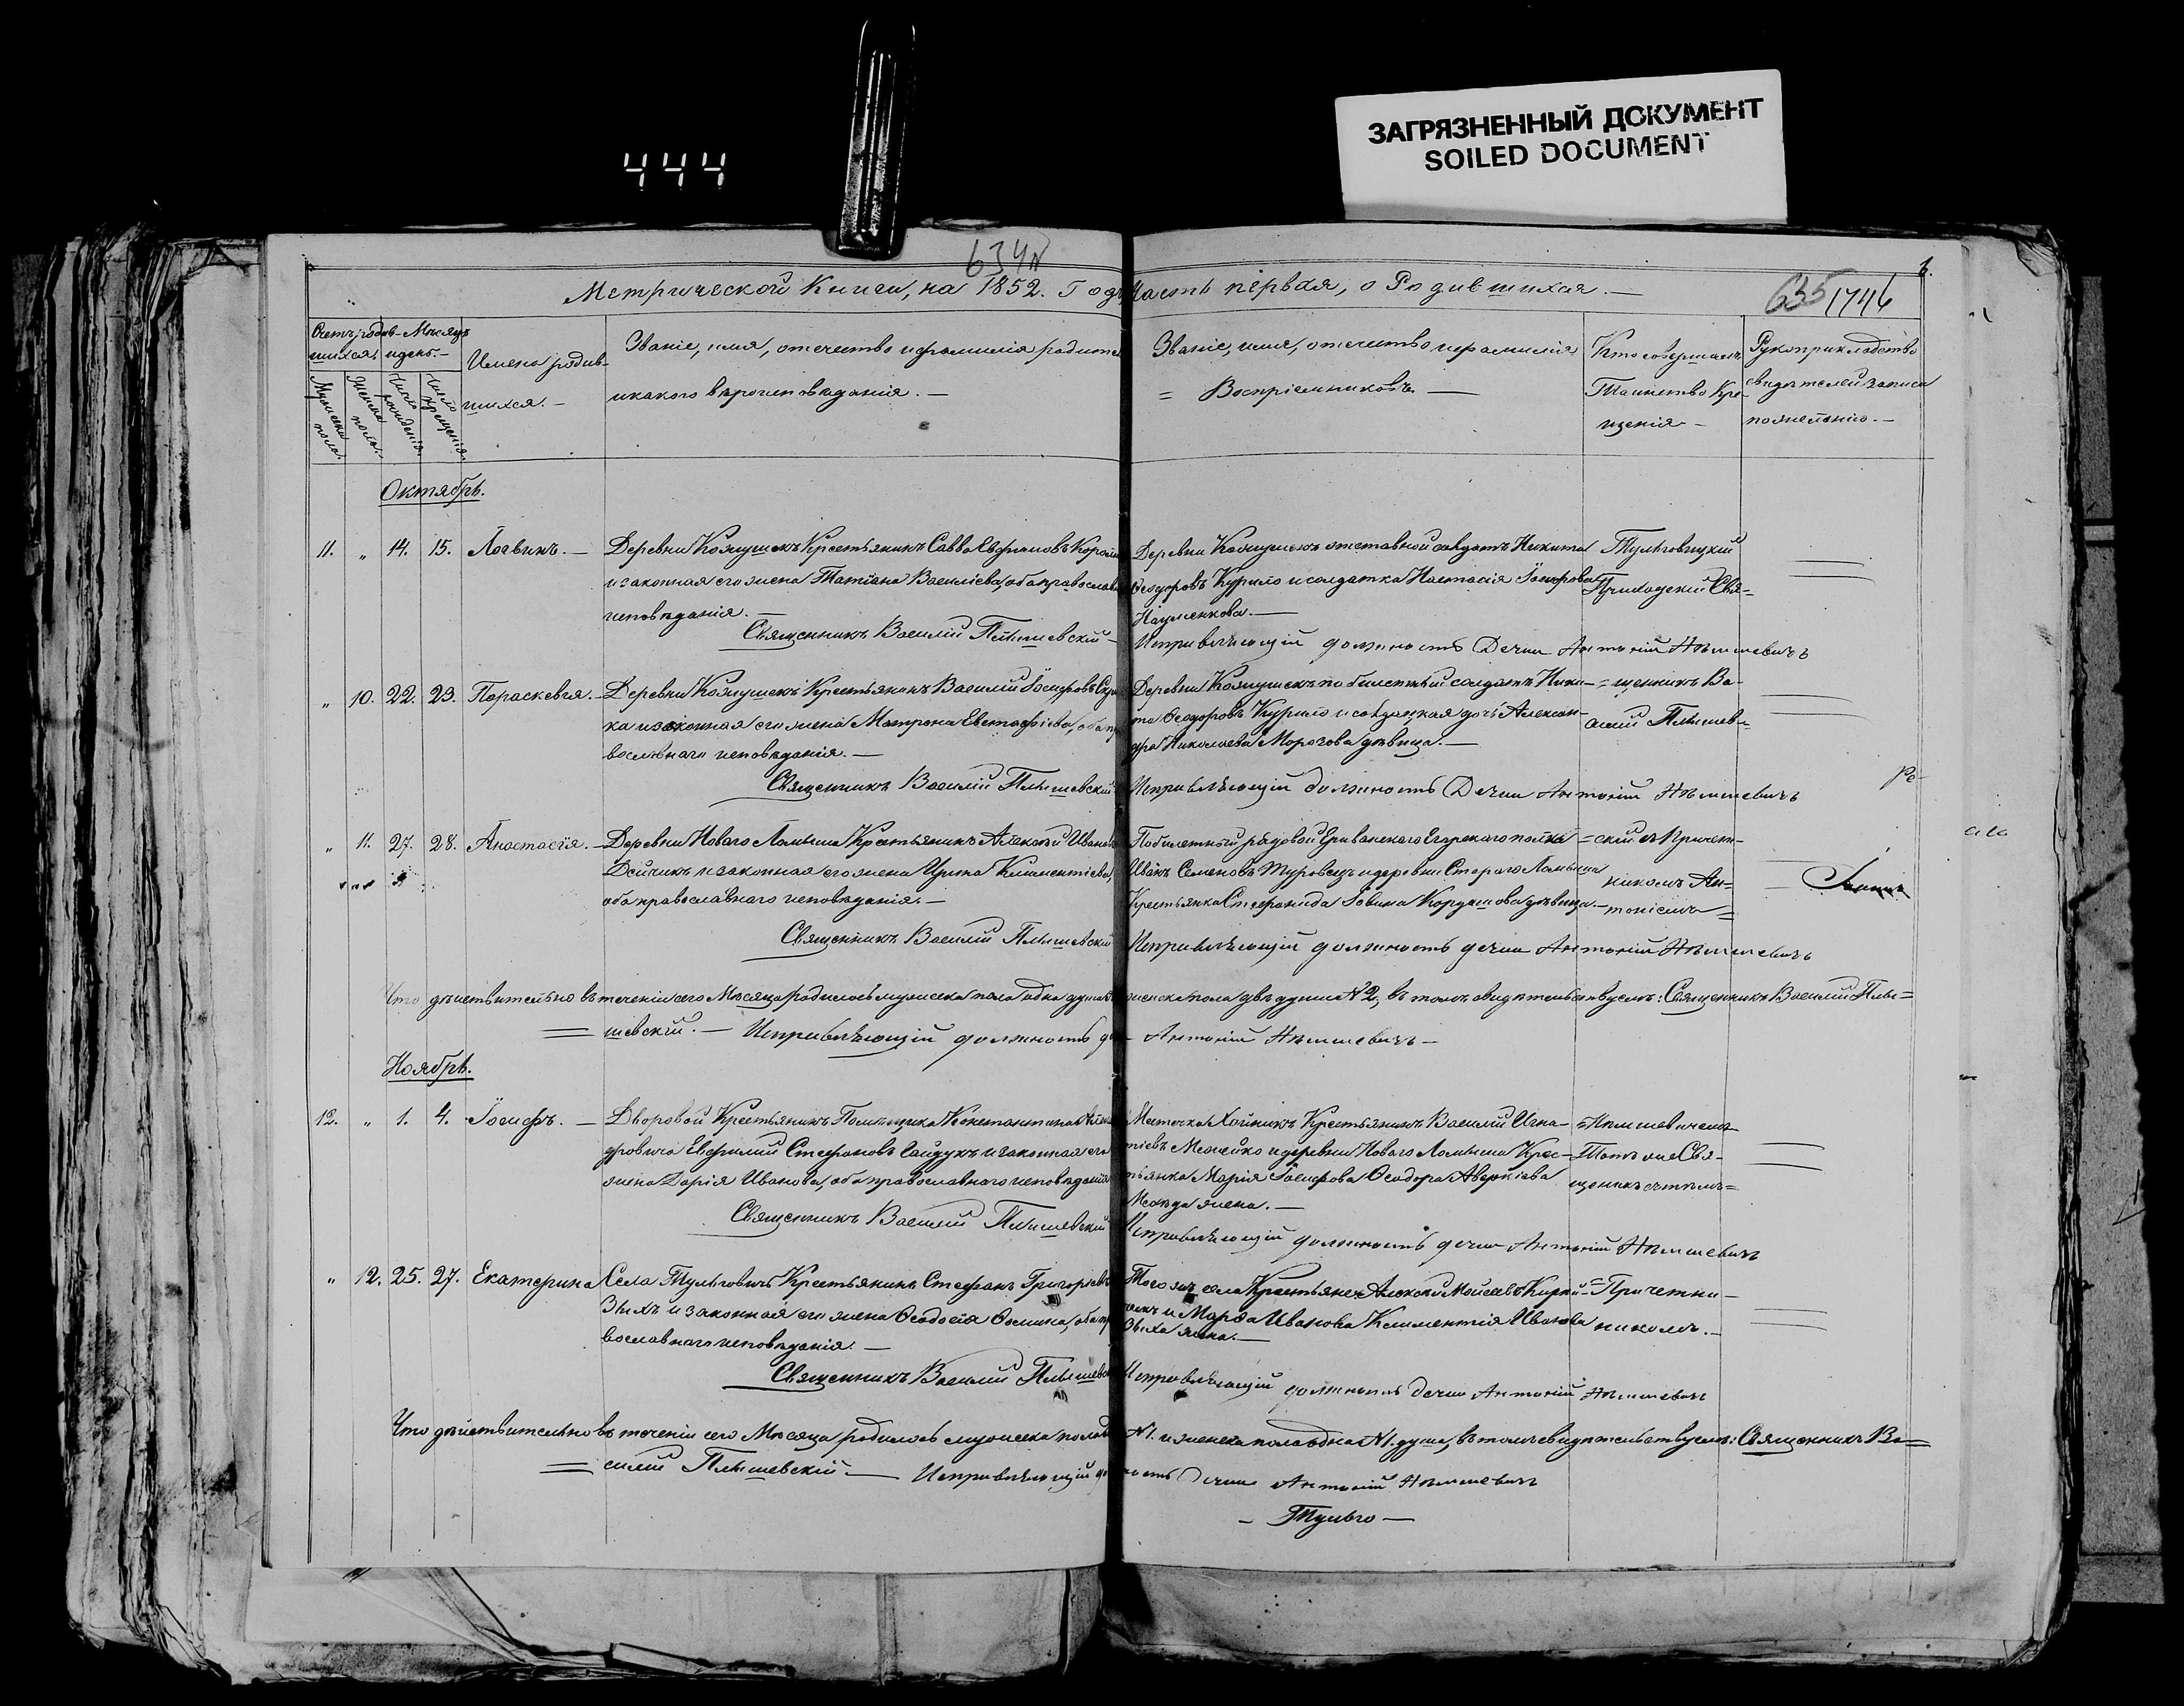 444
ЗАГРЯЗНЕННЫЙ ДОКУМЕНТ
SOILED DOCUMENT
634
635 1746
Метрической Книги, на 1852. Годъ Часть первая, о Родившихся. —
Счетъ родив-шихся. Мѣсяцъ и день. —
Мужеска пола.
Женска пола.
Число рожденія.
Число крещенія.
Имена родив-
шихся. —
Званіе, имя, отечество и фамилія родите
и какого вѣроисповѣданія. —
Званіе, имя, отечество и фамилія
= Воспріемниковъ. —
Кто совершалъ
Таинство Кре-
щенія —
Рукоприкладство
свидѣтелей записи
по желанію. —
Октябрь.
11. „ 14. 15. Логвинъ. —
Деревни Кожушекъ Крестьянинъ Савва
и законная его жена Татіана Василіева, оба православн
исповѣданія. —
Священникъ Василій Плышевскій —
Деревни Кожушекъ отставной солдатъ Никита
Ѳеодоровъ Курило и солдатка Настасія Іосифова
Науменкова. —
Исправляющій должность Дечии Антоній
Тульговицкій
Приходскій Свя-
„ 10. 22. 23. Параскевія. —
Деревни Кожушекъ Крестьянинъ Василій Іосифовъ
ка и законная его жена Матрона Евстафіева, оба пр
вославнаго исповѣданія. —
Священникъ Василій Плышевскій
Деревни Кожушекъ по билетный солдатъ Ники-
та Ѳеодоровъ Курило и солдацкая дочь Алексан-
дра Николаева Морозова дѣвица. —
Исправляющій должность Дечии Антоній
= щенникъ Ва-
силій Плышев-
„ 11. 27. 28. Анастасія. —
Деревни Новаго Ломыша Крестьянинъ Алексѣй Иванов
Дейчикъ и законная его жена Ирина Климентіева,
оба православнаго исповѣданія. —
Священникъ Василій Плышевскій
По билетный рядовой Ериванскаго Егерскаго полка
Иванъ Семеновъ Туровецъ и деревни Стараго Ломыша
Крестьянка Стефанида Іовина Кордашова дѣвица. —
Исправляющій должность дечии Антоній
= скій съ Причет-
никомъ Ан-
тоніемъ =
Что дѣйствительно въ теченіи сего Мѣсяца родилось мужеска пола одна душа женска пола двѣ души №2, въ томъ свидѣтельствуемъ: Священникъ Василій Плы=
= шевскій. — Исправляющій должность д — Антоній —
Ноябрь.
12. „ 1. 4. Іосифъ. —
Дворовой Крестьянинъ Помѣщика Константина
дровича Евфимій Стефановъ Гайдукъ и законная его
жена Дарія Иванова, оба православнаго исповѣданія
Священникъ Василій Плышевскій
Мѣстечка Хойникъ Крестьянинъ Василій Игна-
тіевъ Мележко и деревни Новаго Ломыша Крес-
тьянка Марія Іосифова Ѳеодора Аверкіева
жена. —
Исправляющій должность дечии Антоній
Тотъ же Свя-
щеникъ съ тѣмъ=
„ 12. 25. 27. Екатерина
Села Тульговичъ Крестьянинъ Стефанъ Григорьевъ
Зыхъ и законная его жена Ѳеодосія Ѳомина, оба пр
вославнаго исповѣданія. —
Священникъ Василій Плышевс
Того же села Крестьяне Алексѣй Моисеевъ
и Марѳа Иванова Климентія Иванова
Зыха жена. —
Исправляющій должность дечии Антоній
= Причетни-
никомъ. —
Что дѣйствительно въ теченіи сего Мѣсяца родилось мужеска пола №1. и женска пола одна №1. душа, въ томъ свидѣтельствуемъ: Священникъ Ва=
= силій Плышевскій. — Исправляющій должность дечии Антоній
— Тульго —